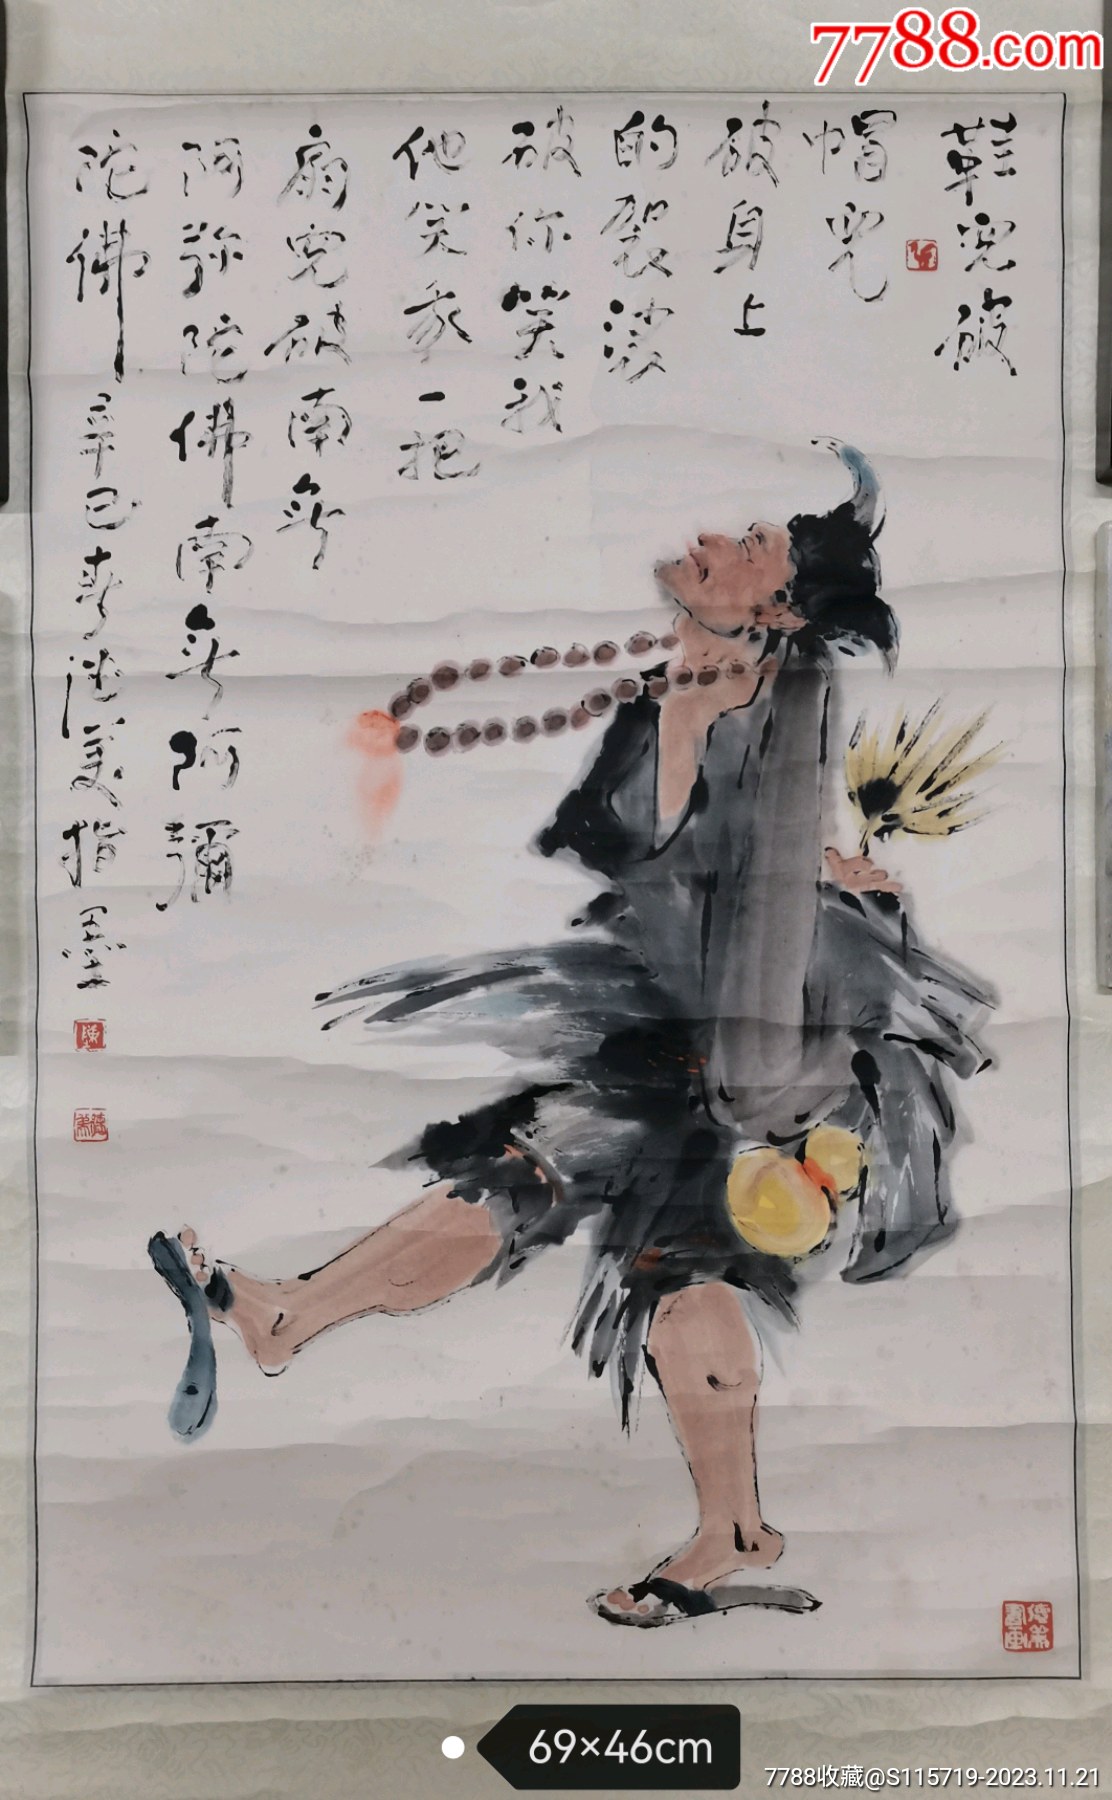 7788.com
鞋兒破
帽兒
破身上
的袈裟
破你笑我
他笑我一把
扇兒破南無
阿弥陀佛南無阿彌
陀佛
辛巳春德美指墨
69×46cm
7788收藏@S115719-2023.11.21